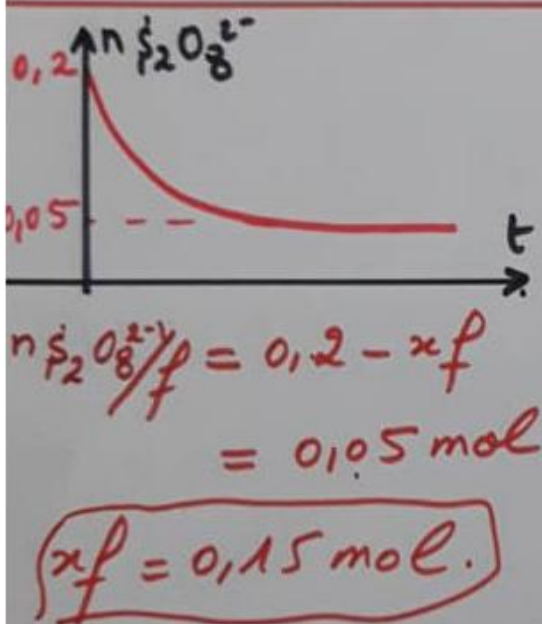 n S₂O₈²⁻
0,2
0,05
t
n S₂O₈²⁻/f = 0,2 - xf
= 0,05 mol
xf = 0,15 mol.